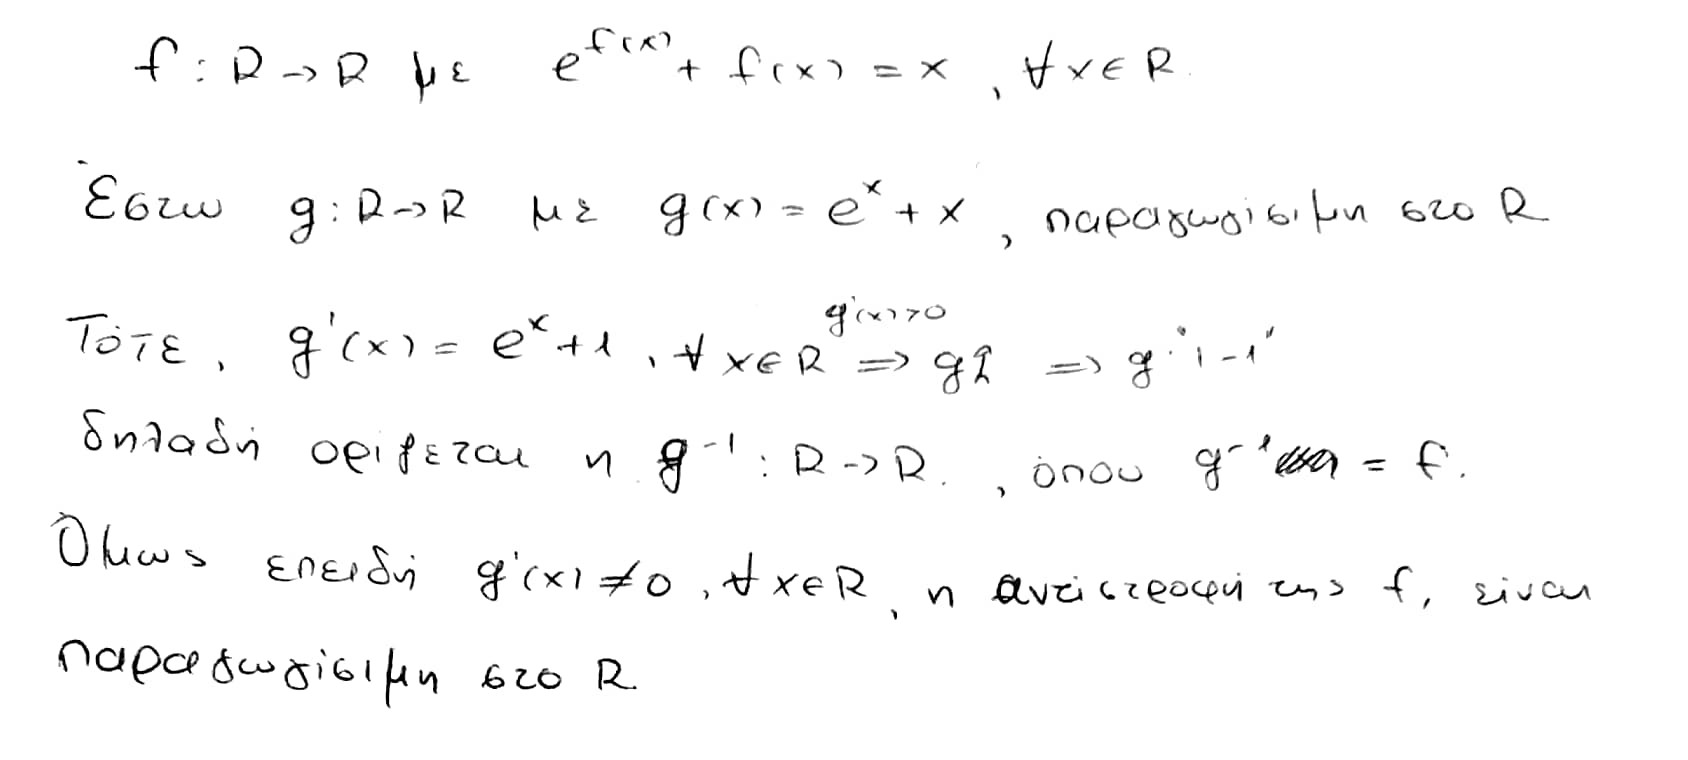 f: R → R με e^{f(x)} + f(x) = x , ∀ x ∈ R.
Έστω g: R → R με g(x) = e^x + x , παραγωγίσιμη στο R
Τότε, g'(x) = e^x + 1 , ∀ x ∈ R ⇒^{g'(x)>0} g↑ ⇒ g "1-1"
δηλαδή ορίζεται η g^{-1} : R → R. , όπου g^{-1} = f.
Όμως επειδή g'(x) ≠ 0 , ∀ x ∈ R , η αντίστροφή της f, είναι
παραγωγίσιμη στο R